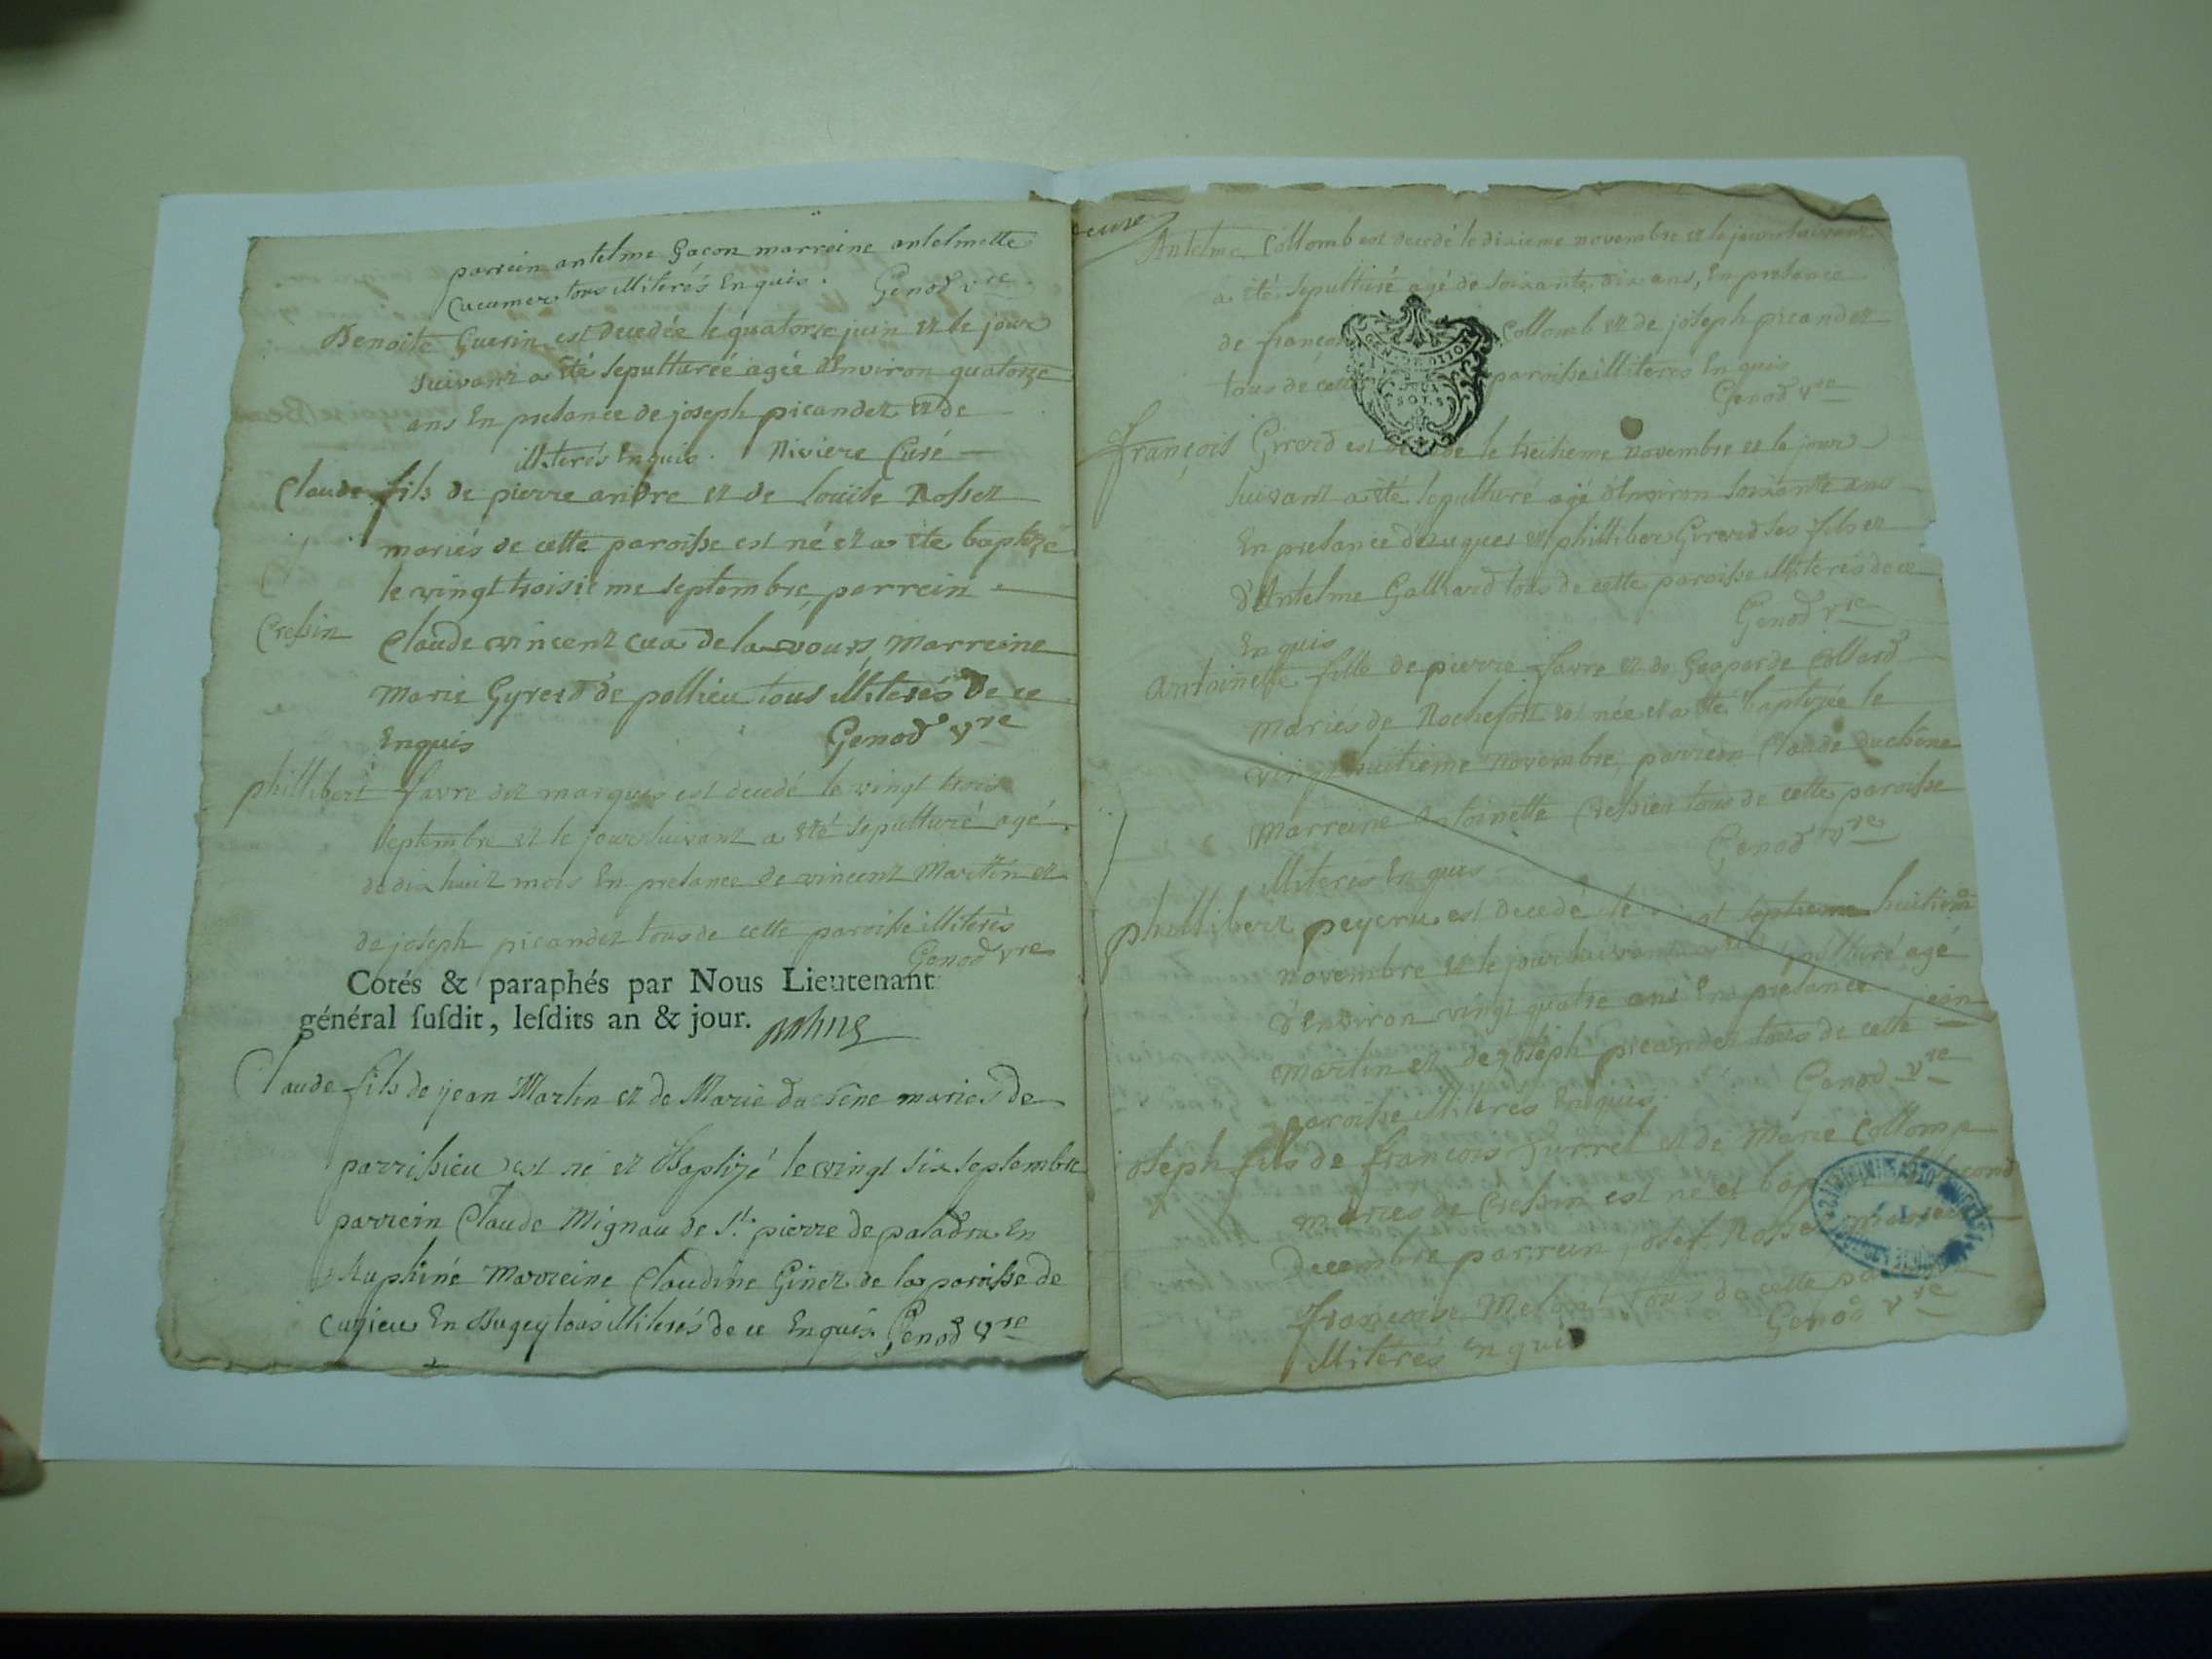 parrein antelme Gacon marreine antelmette
Cucumer tous illiterés Enquis. Genod vre
Benoite Guerin est decedée le quatorze juin et le jour
suivant a été sepulturéé agée d'Environ quatorze
ans En presance de joseph picandet et de
illiterés Enquis. Riviere Curé
Claude fils de pierre andre et de Louise Rosset
mariés de cette paroisse est né et a été baptizé
le vingt troisieme septembre, parrein
Cressin
Claude vincent cua de lavours, Marreine
Marie Gyrerd de pollieu tous illiterés de ce
Enquis Genod vre
phillibert favre dit marquis est decedé le vingt trois
septembre et le jour suivant a été sepulturé agé
de dix huit mois En presance de vincent Martin et
de joseph picandet tous de cette paroisse illiterés
Genod vre
Cotés & paraphés par Nous Lieutenant
général susdit, lesdits an & jour.
Claude fils de jean Martin et de Marie duchêne mariés de
parrissieu est né et Baptizé le vingt six septembre
parrein Claude Mignau de St. pierre de paladru En
Dauphiné Marreine Claudine Ginet de la paroisse de
cuzieu En Bugey tous illiterés de ce Enquis Genod vre
Antelme Collomb est decedé le dixieme novembre et le jour suivant
a été sepulturé agé de soixante dix ans, En presance
de françois Collomb et de joseph picandet
tous de cette paroisse illiteres Enquis
Genod vre
GEN. DE DIJON
DEUX
SOLS
françois Girerd est decedé le treitieme novembre et le jour
suivant a été sepulturé agé d'Environ soixante ans
En presance d'hugues et phillibert Girerd ses fils et
d'Antelme Galliard tous de cette paroisse illiterés de ce
Enquis Genod vre
Antoinette fille de pierre favre et de Gasparde Collard
mariés de Rochefort est née et a été baptizée le
vingt huitieme novembre, parrein Claude duchêne
Marreine Antoinette Cressieu tous de cette paroisse
illiteres Enquis Genod vre
phillibert peyeru est decedé le vingt septieme huitieme
novembre et le jour suivant a été sepulturé agé
d'Environ vingt quatre ans En presance jean
Martin et de joseph picandet tous de cette
paroisse illiterés Enquis. Genod vre
joseph fils de françois Furret et de Marie Collomp
mariés de Cressin est né et bap second
decembre parrein josef Rosset marreine
françoise tous de cette pa
illiterés Enquis Genod vre